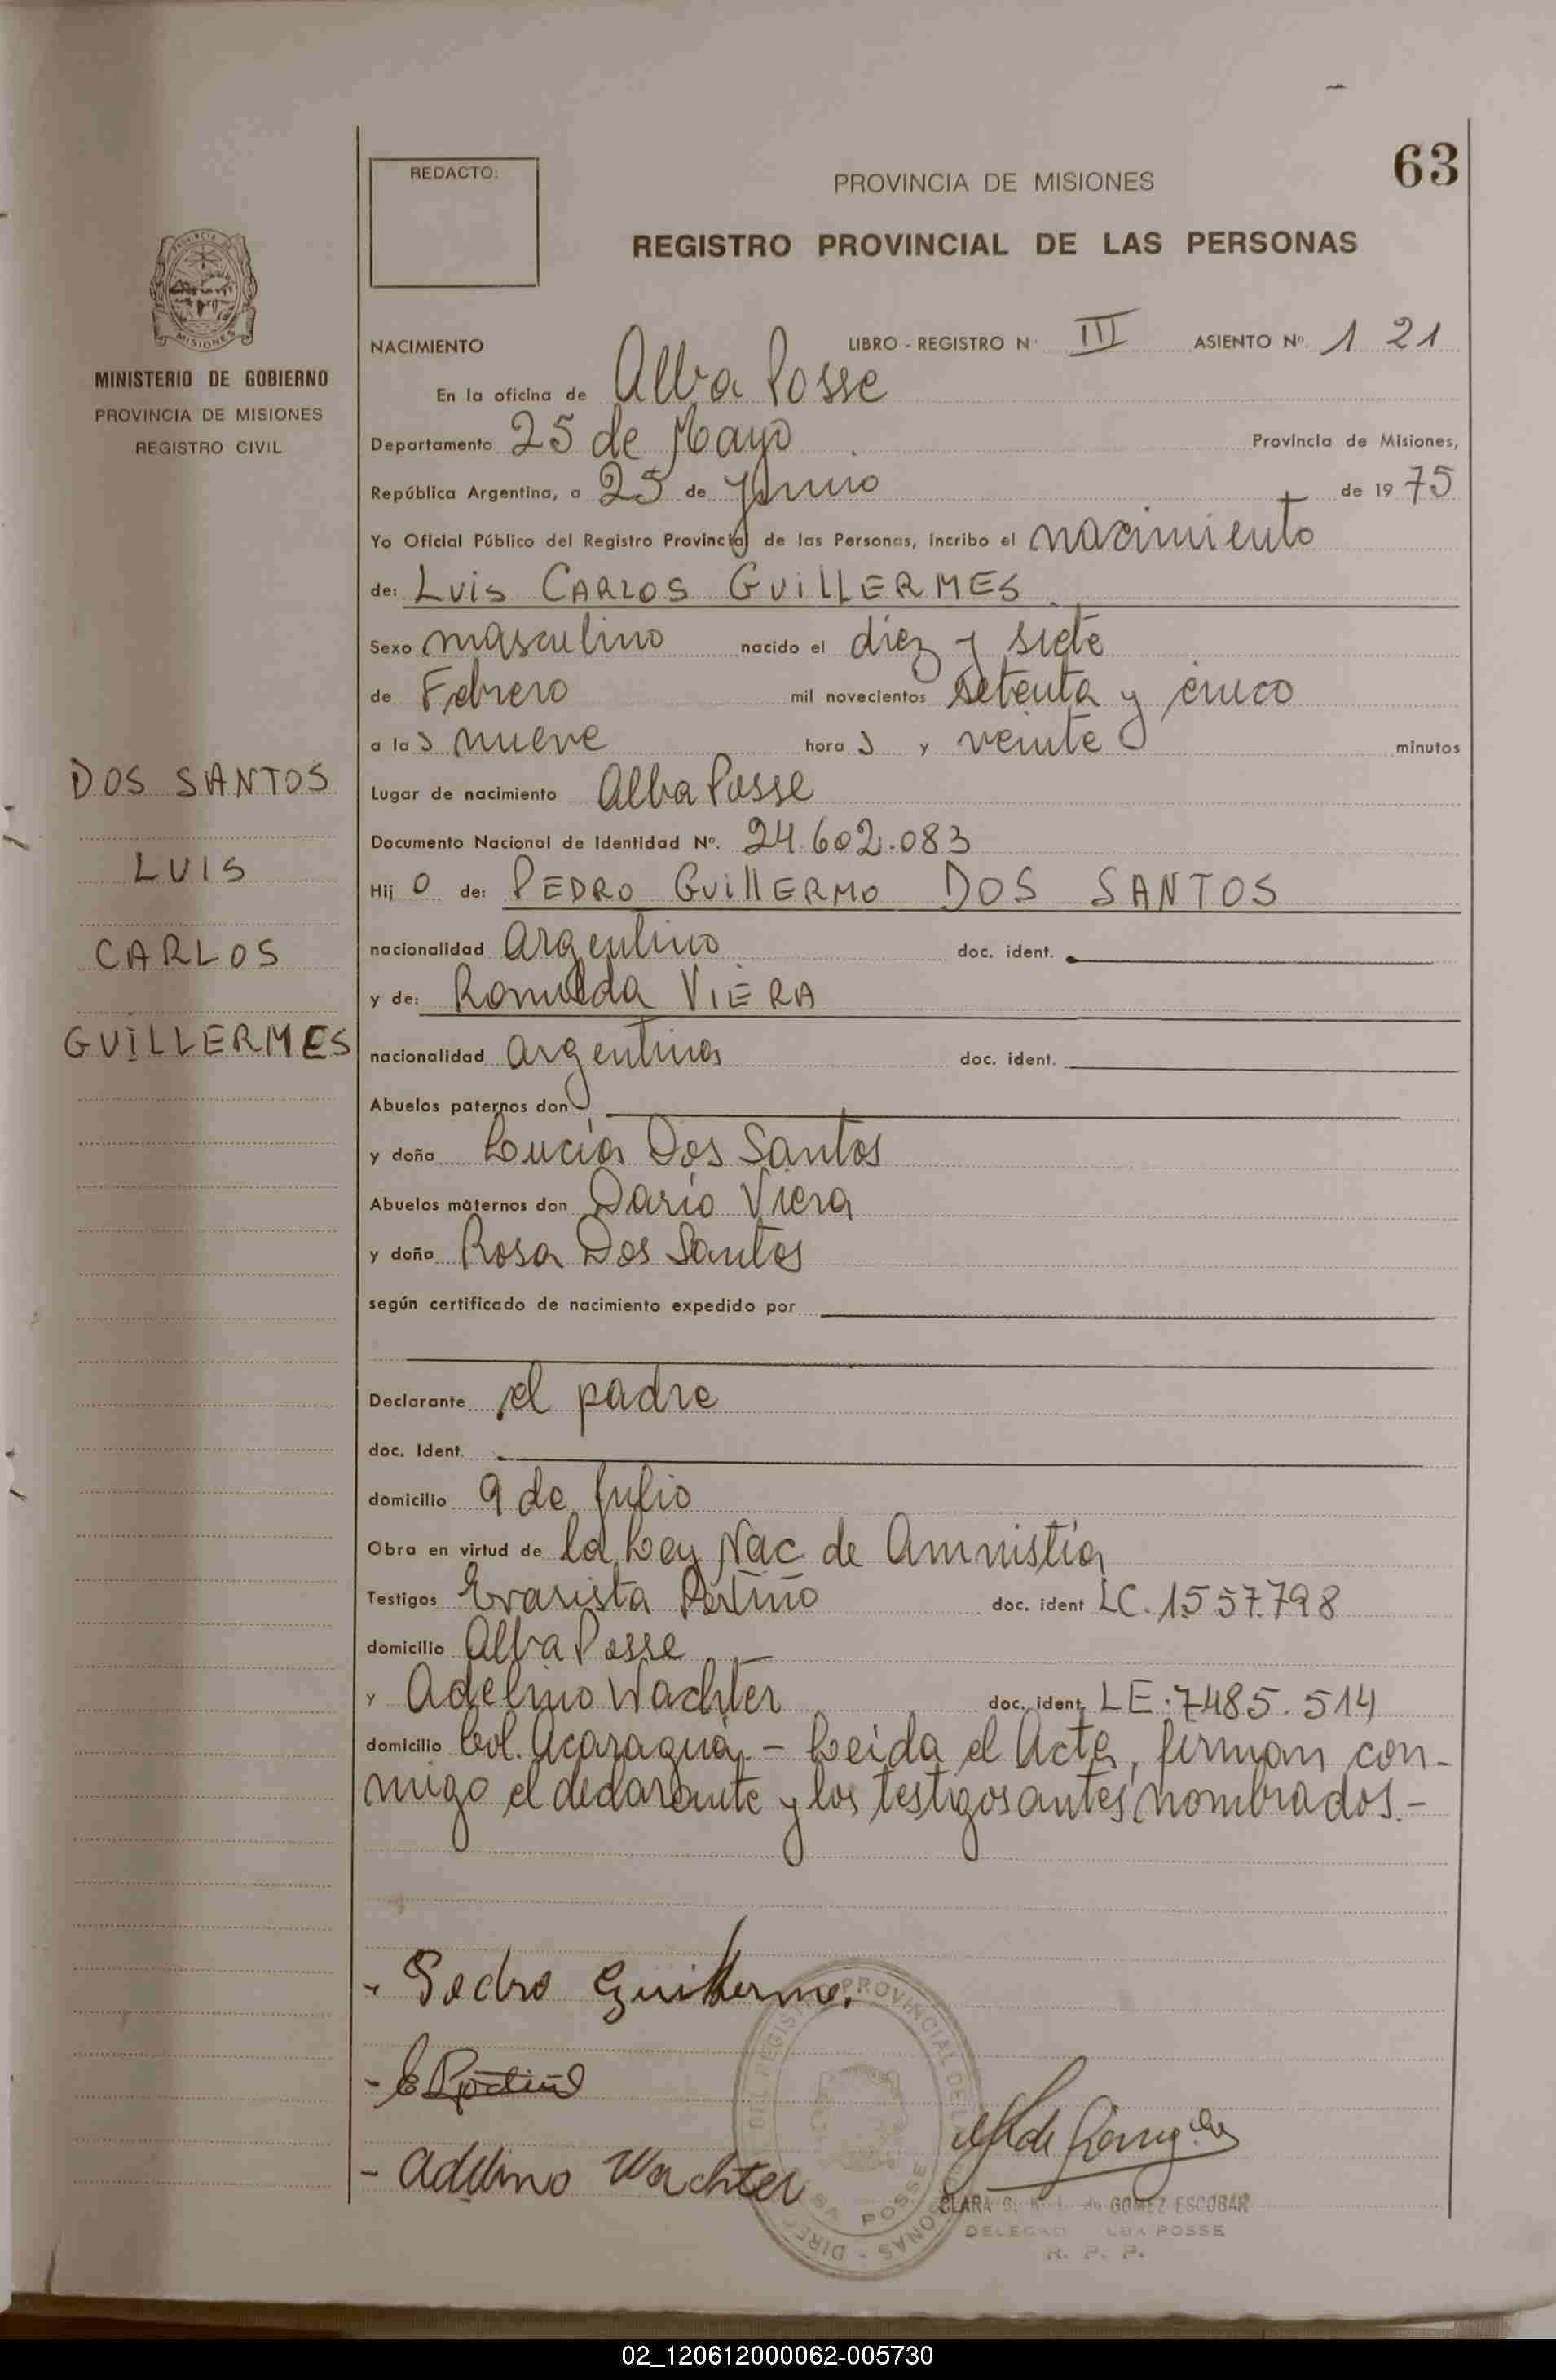 63
REDACTO:
PROVINCIA DE MISIONES
REGISTRO PROVINCIAL DE LAS PERSONAS
MISIONES
MINISTERIO DE GOBIERNO
PROVINCIA DE MISIONES
REGISTRO CIVIL
DOS SANTOS
LUIS
CARLOS
GUILLERMES
NACIMIENTO LIBRO - REGISTRO Nº III ASIENTO Nº. 121
En la oficina de Alba Posse
Departamento 25 de Mayo Provincia de Misiones,
República Argentina, a 25 de Junio de 1975
Yo Oficial Público del Registro Provincial de las Personas, incribo el nacimiento
de: LUIS CARLOS GUILLERMES
Sexo masculino nacido el diez y siete
de Febrero mil novecientos setenta y cinco
a las nueve horas y veinte minutos
Lugar de nacimiento Alba Posse
Documento Nacional de Identidad Nº. 24.602.083
Hijo de: PEDRO GUILLERMO DOS SANTOS
nacionalidad argentino doc. ident.
y de: Romualda VIERA
nacionalidad argentina doc. ident.
Abuelos paternos don
y doña Lucía Dos Santos
Abuelos maternos don Darío Viera
y doña Rosa Dos Santos
según certificado de nacimiento expedido por
Declarante el padre
doc. Ident.
domicilio 9 de Julio
Obra en virtud de la Ley Nac de Amnistía
Testigos Evarista doc. ident LC. 1557.798
domicilio Alba Posse
y Adelino Wachter doc. ident. LE. 7485.514
domicilio Col. Acaraguá - Leida el Acta, firman con-
migo el declarante y los testigos antes nombrados.-
- Pedro Guillermo.
- Adelino Wachter
CLARA de GOMEZ ESCOBAR
POSSE
R. P. P.
02_120612000062-005730